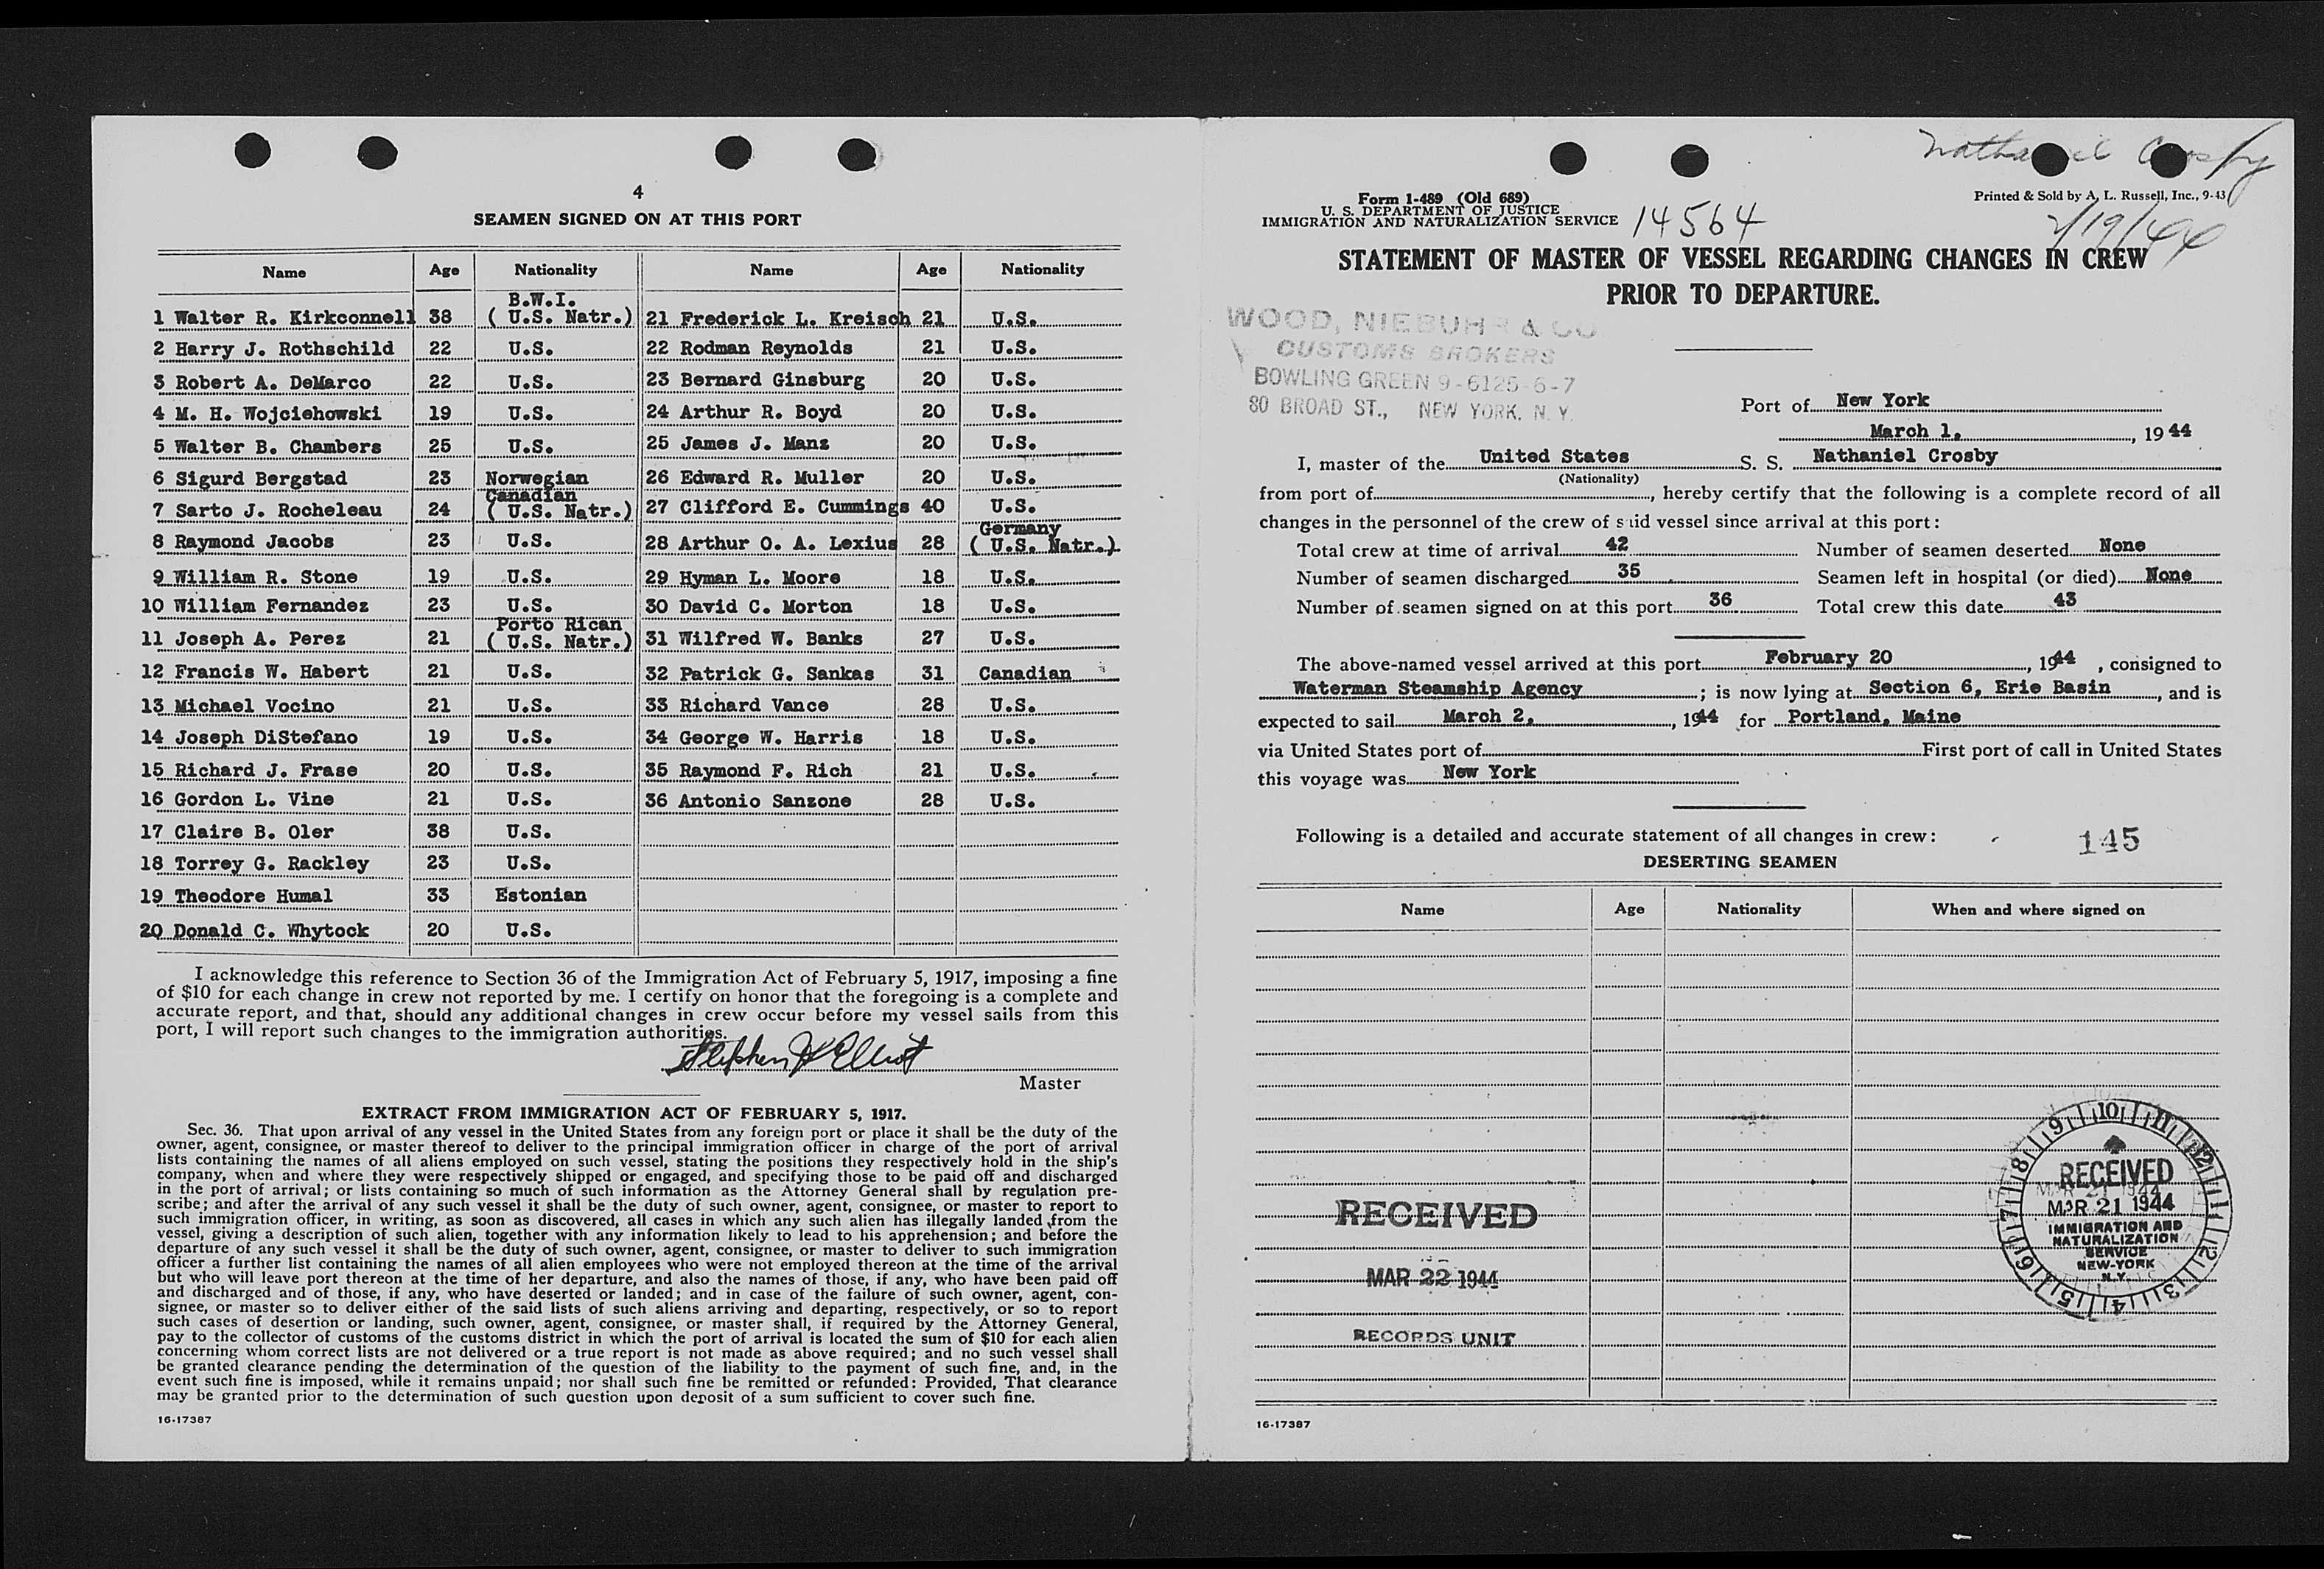 4
SEAMEN SIGNED ON AT THIS PORT
Name Age Nationality Name Age Nationality
1 Walter R. Kirkconnell 38 B.W.I. ( U.S. Natr.) 21 Frederick L. Kreisch 21 U.S.
2 Harry J. Rothschild 22 U.S. 22 Rodman Reynolds 21 U.S.
3 Robert A. DeMarco 22 U.S. 23 Bernard Ginsburg 20 U.S.
4 M. H. Wojciehowski 19 U.S. 24 Arthur R. Boyd 20 U.S.
5 Walter B. Chambers 25 U.S. 25 James J. Manz 20 U.S.
6 Sigurd Bergstad 23 Norwegian 26 Edward R. Muller 20 U.S.
7 Sarto J. Rocheleau 24 Canadian ( U.S. Natr.) 27 Clifford E. Cummings 40 U.S.
8 Raymond Jacobs 23 U.S. 28 Arthur O. A. Lexius 28 Germany ( U.S. Natr.)
9 William R. Stone 19 U.S. 29 Hyman L. Moore 18 U.S.
10 William Fernandez 23 U.S. 30 David C. Morton 18 U.S.
11 Joseph A. Perez 21 Porto Rican ( U.S. Natr.) 31 Wilfred W. Banks 27 U.S.
12 Francis W. Habert 21 U.S. 32 Patrick G. Sankas 31 Canadian
13 Michael Vocino 21 U.S. 33 Richard Vance 28 U.S.
14 Joseph DiStefano 19 U.S. 34 George W. Harris 18 U.S.
15 Richard J. Frase 20 U.S. 35 Raymond F. Rich 21 U.S.
16 Gordon L. Vine 21 U.S. 36 Antonio Sanzone 28 U.S.
17 Claire B. Oler 38 U.S.
18 Torrey G. Rackley 23 U.S.
19 Theodore Humal 33 Estonian
20 Donald C. Whytock 20 U.S.
I acknowledge this reference to Section 36 of the Immigration Act of February 5, 1917, imposing a fine
of $10 for each change in crew not reported by me. I certify on honor that the foregoing is a complete and
accurate report, and that, should any additional changes in crew occur before my vessel sails from this
port, I will report such changes to the immigration authorities.
Stephen Elliot
Master
EXTRACT FROM IMMIGRATION ACT OF FEBRUARY 5, 1917.
Sec. 36. That upon arrival of any vessel in the United States from any foreign port or place it shall be the duty of the
owner, agent, consignee, or master thereof to deliver to the principal immigration officer in charge of the port of arrival
lists containing the names of all aliens employed on such vessel, stating the positions they respectively hold in the ship's
company, when and where they were respectively shipped or engaged, and specifying those to be paid off and discharged
in the port of arrival; or lists containing so much of such information as the Attorney General shall by regulation pre-
scribe; and after the arrival of any such vessel it shall be the duty of such owner, agent, consignee, or master to report to
such immigration officer, in writing, as soon as discovered, all cases in which any such alien has illegally landed from the
vessel, giving a description of such alien, together with any information likely to lead to his apprehension; and before the
departure of any such vessel it shall be the duty of such owner, agent, consignee, or master to deliver to such immigration
officer a further list containing the names of all alien employees who were not employed thereon at the time of the arrival
but who will leave port thereon at the time of her departure, and also the names of those, if any, who have been paid off
and discharged and of those, if any, who have deserted or landed; and in case of the failure of such owner, agent, con-
signee, or master so to deliver either of the said lists of such aliens arriving and departing, respectively, or so to report
such cases of desertion or landing, such owner, agent, consignee, or master shall, if required by the Attorney General,
pay to the collector of customs of the customs district in which the port of arrival is located the sum of $10 for each alien
concerning whom correct lists are not delivered or a true report is not made as above required; and no such vessel shall
be granted clearance pending the determination of the question of the liability to the payment of such fine, and, in the
event such fine is imposed, while it remains unpaid; nor shall such fine be remitted or refunded: Provided, That clearance
may be granted prior to the determination of such question upon deposit of a sum sufficient to cover such fine.
16-17387
Nathaniel Crosby
Form 1-489 (Old 689)
U. S. DEPARTMENT OF JUSTICE
IMMIGRATION AND NATURALIZATION SERVICE
14564
Printed & Sold by A. L. Russell, Inc., 9-43
2/19/44
STATEMENT OF MASTER OF VESSEL REGARDING CHANGES IN CREW
PRIOR TO DEPARTURE.
WOOD, NIEBUHR & CO
CUSTOMS BROKERS
BOWLING GREEN 9-6125-6-7
80 BROAD ST., NEW YORK, N. Y.
Port of New York
March 1, 1944
I, master of the United States S. S. Nathaniel Crosby
(Nationality)
from port of , hereby certify that the following is a complete record of all
changes in the personnel of the crew of said vessel since arrival at this port:
Total crew at time of arrival 42 Number of seamen deserted None
Number of seamen discharged 35 Seamen left in hospital (or died) None
Number of seamen signed on at this port 36 Total crew this date 43
The above-named vessel arrived at this port February 20, 1944, consigned to
Waterman Steamship Agency; is now lying at Section 6, Erie Basin, and is
expected to sail March 2, 1944 for Portland, Maine
via United States port of First port of call in United States
this voyage was New York
Following is a detailed and accurate statement of all changes in crew:
145
DESERTING SEAMEN
Name Age Nationality When and where signed on
RECEIVED
MAR 22 1944
RECORDS UNIT
9 10 11 12 1 2 3 4 5 6 7 8
RECEIVED
MAR 21 1944
IMMIGRATION AND
NATURALIZATION
SERVICE
NEW-YORK
N.Y.
16-17387